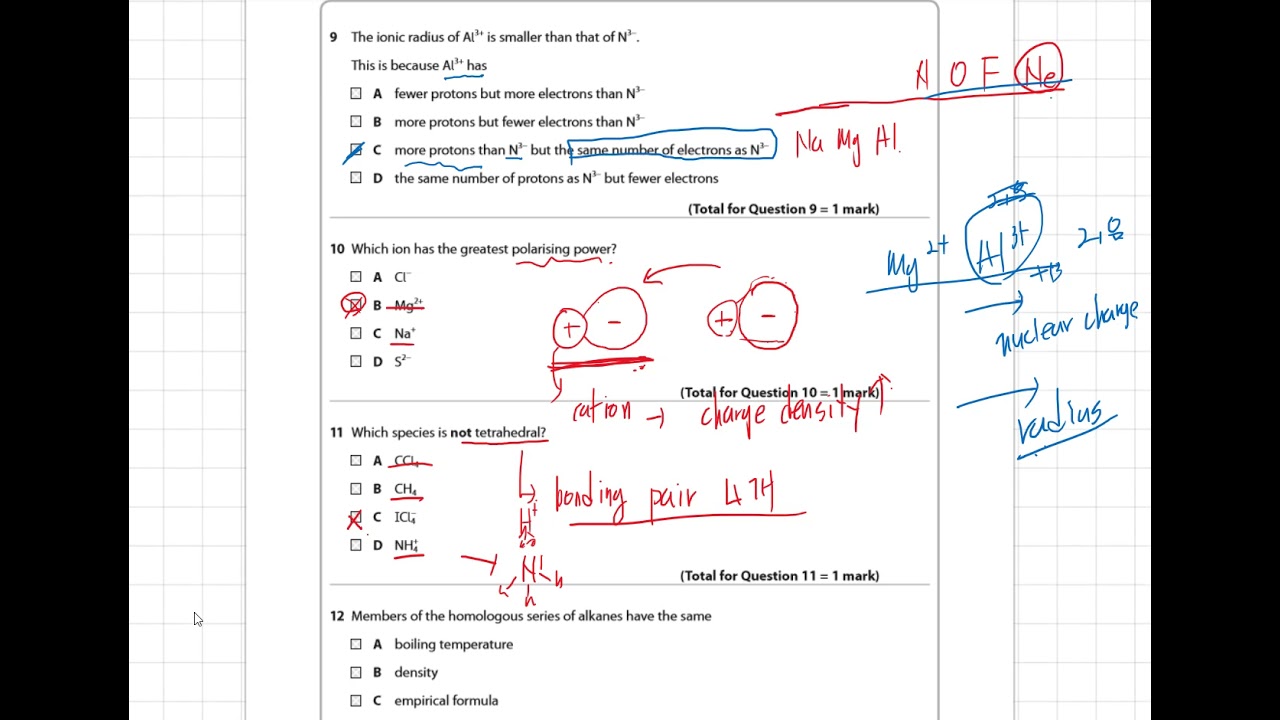 9 The ionic radius of Al³⁺ is smaller than that of N³⁻.
This is because Al³⁺ has
A fewer protons but more electrons than N³⁻
B more protons but fewer electrons than N³⁻
C more protons than N³⁻ but the same number of electrons as N³⁻
D the same number of protons as N³⁻ but fewer electrons
(Total for Question 9 = 1 mark)
O F Ne
Na Mg Al.
Mg²⁺ Al³⁺ 2,8
+13
nuclear charge
radius
10 Which ion has the greatest polarising power?
A Cl⁻
B Mg²⁺
C Na⁺
D S²⁻
+ -
+ -
(Total for Question 10 = 1 mark)
cation → charge density ↑
11 Which species is not tetrahedral?
A CCl₄
B CH₄
C ICl₄⁻
D NH₄⁺
bonding pair 4개
H⁺
N
h
h
(Total for Question 11 = 1 mark)
12 Members of the homologous series of alkanes have the same
A boiling temperature
B density
C empirical formula